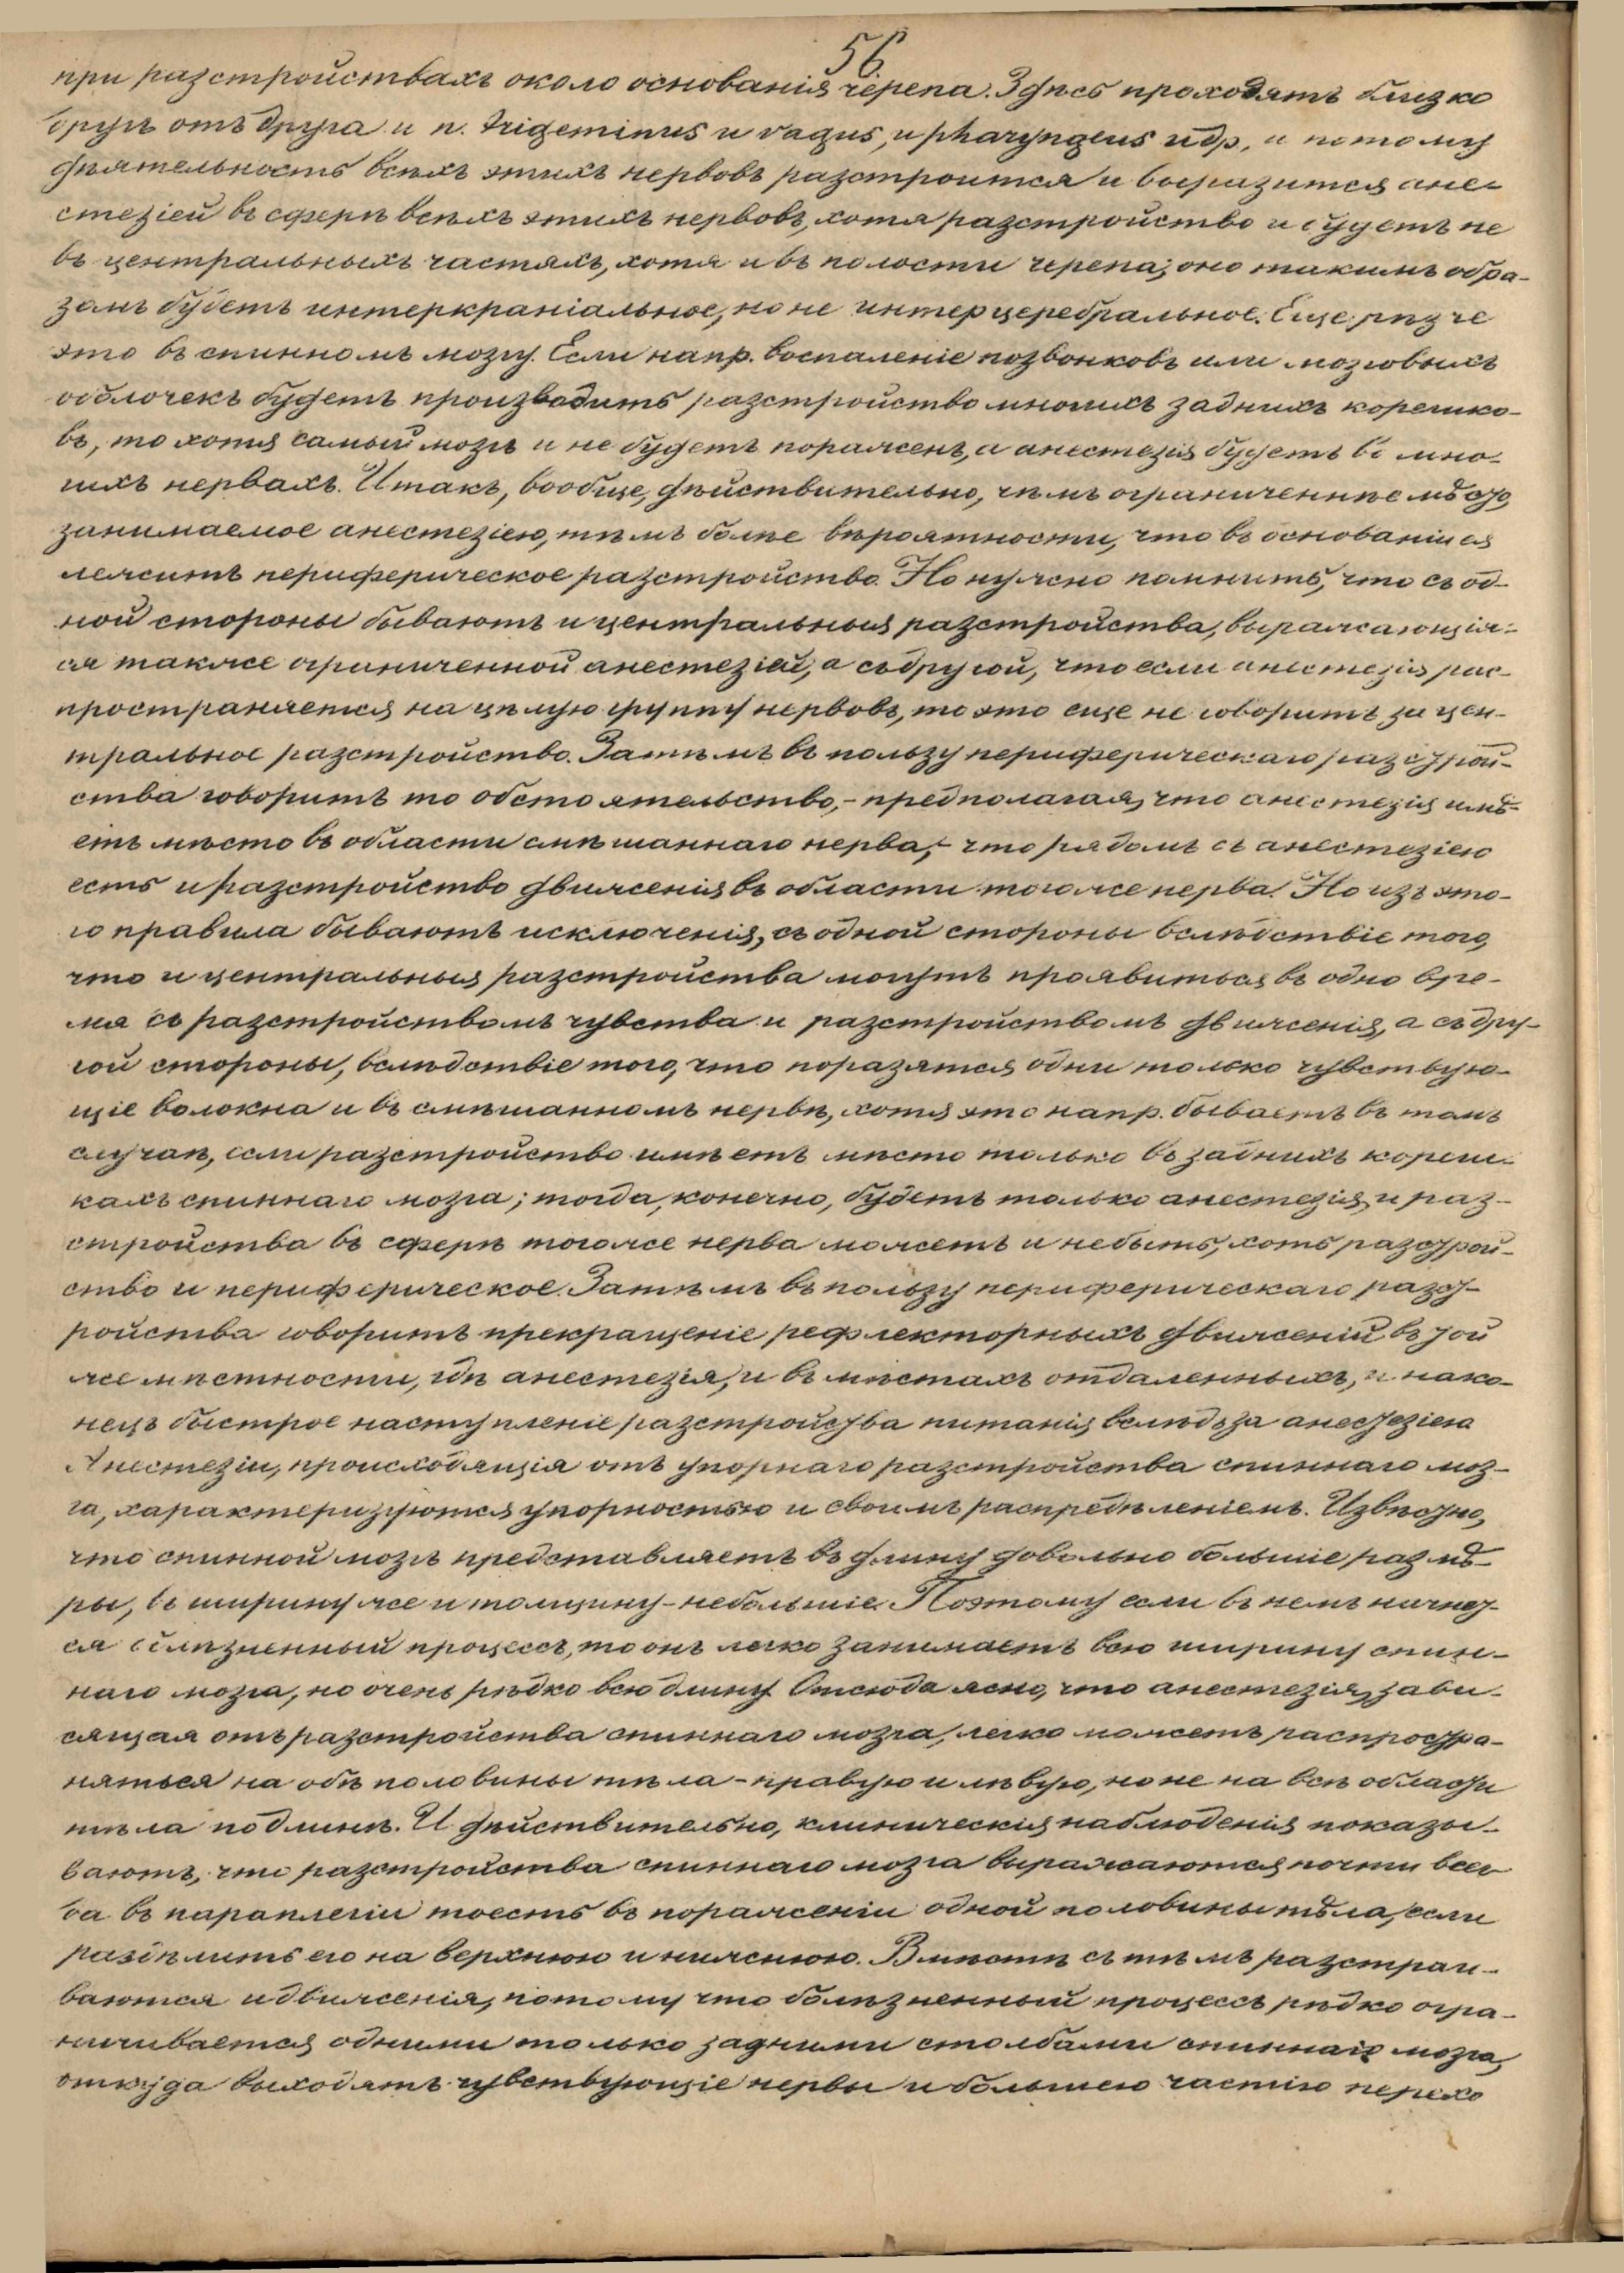 56
при разстройствахъ около основанія черепа. Здѣсь проходятъ близко
другъ отъ друга и n. trigeminus и vagus, и pharyngeus и др., и потому
дѣятельность всѣхъ этихъ нервовъ разстроится и выразится ане-
стезіей въ сферѣ всѣхъ этихъ нервовъ, хотя разстройство и будетъ не
въ центральныхъ частяхъ, хотя и въ полости черепа; оно такимъ обра-
зомъ будетъ интеркраніальное, но не интерцеребральное. Еще рѣзче
это въ спинномъ мозгу. Если напр. воспаленіе позвонковъ или мозговыхъ
оболочекъ будетъ производить разстройство многихъ заднихъ корешко-
въ, то хотя самый мозгъ и не будетъ пораженъ, а анестезія будетъ во мно-
гихъ нервахъ. Итакъ, вообще, дѣйствительно, чѣмъ ограниченнѣе мѣсто,
занимаемое анестезіею, тѣмъ болѣе вѣроятности, что въ основаніи ея
лежитъ периферическое разстройство. Но нужно помнить, что съ од-
ной стороны бываютъ и центральныя разстройства, выражающія-
ся также ограниченной анестезіей, а съ другой, что если анестезія рас-
пространяется на цѣлую группу нервовъ, то это еще не говоритъ за цен-
тральное разстройство. Затѣмъ въ пользу периферическаго разстрой-
ства говоритъ то обстоятельство,- предполагая, что анестезія имѣ-
етъ мѣсто въ области смѣшаннаго нерва,- что рядомъ съ анестезіею
есть и разстройство движенія въ области того же нерва. Но изъ это-
го правила бываютъ исключенія, съ одной стороны вслѣдствіе того,
что и центральныя разстройства могутъ проявиться въ одно вре-
мя съ разстройствомъ чувства и разстройствомъ движенія, а съ дру-
гой стороны, вслѣдствіе того, что поразятся одни только чувствую-
щіе волокна и въ смѣшанномъ нервѣ, хотя это напр. бываетъ въ томъ
случаѣ, если разстройство имѣетъ мѣсто только въ заднихъ кореш-
кахъ спиннаго мозга; тогда, конечно, будетъ только анестезія, и раз-
стройства въ сферѣ того же нерва можетъ и не быть, хоть разстрой-
ство и периферическое. Затѣмъ въ пользу периферическаго разст-
ройства говоритъ прекращеніе рефлекторныхъ движеній въ той
же мѣстности, гдѣ анестезія, и въ мѣстахъ отдаленныхъ, и нако-
нецъ быстрое наступленіе разстройства питанія вслѣдъ за анестезіею
Анестезіи, происходящія отъ упорнаго разстройства спиннаго моз-
га, характеризуются упорностью и своимъ распредѣленіемъ. Извѣстно,
что спинной мозгъ представляетъ въ длину довольно большіе размѣ-
ры, въ ширину же и толщину - небольшіе. Поэтому если въ немъ начнет-
ся болѣзненный процессъ, то онъ легко занимаетъ всю ширину спин-
наго мозга, но очень рѣдко всю длину. Отсюда ясно, что анестезія, зави-
сящая отъ разстройства спиннаго мозга, легко можетъ распростра-
няться на обѣ половины тѣла - правую и лѣвую, но не на всѣ области
тѣла по длинѣ. И дѣйствительно, клиническія наблюденія показы-
ваютъ, что разстройства спиннаго мозга выражаются почти всег-
да въ параплегіи тоесть въ пораженіи одной половины тѣла, если
раздѣлить его на верхнюю и нижнюю. Вмѣстѣ съ тѣмъ разстраи-
ваются и движенія, потому что болѣзненный процессъ рѣдко огра-
ничивается одними только задними столбами спиннаго мозга,
откуда выходятъ чувствующіе нервы и большею частію перехо